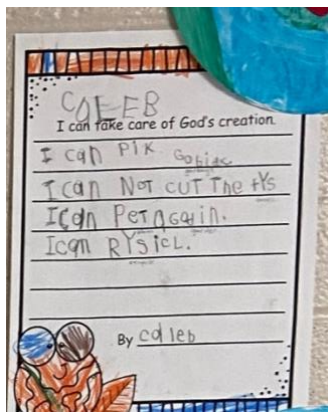 CalEB
I can take care of God's creation.
I can PIK
I can NoT cuT The tYs
I can PeT Again.
I can RYsicL.
By caleb